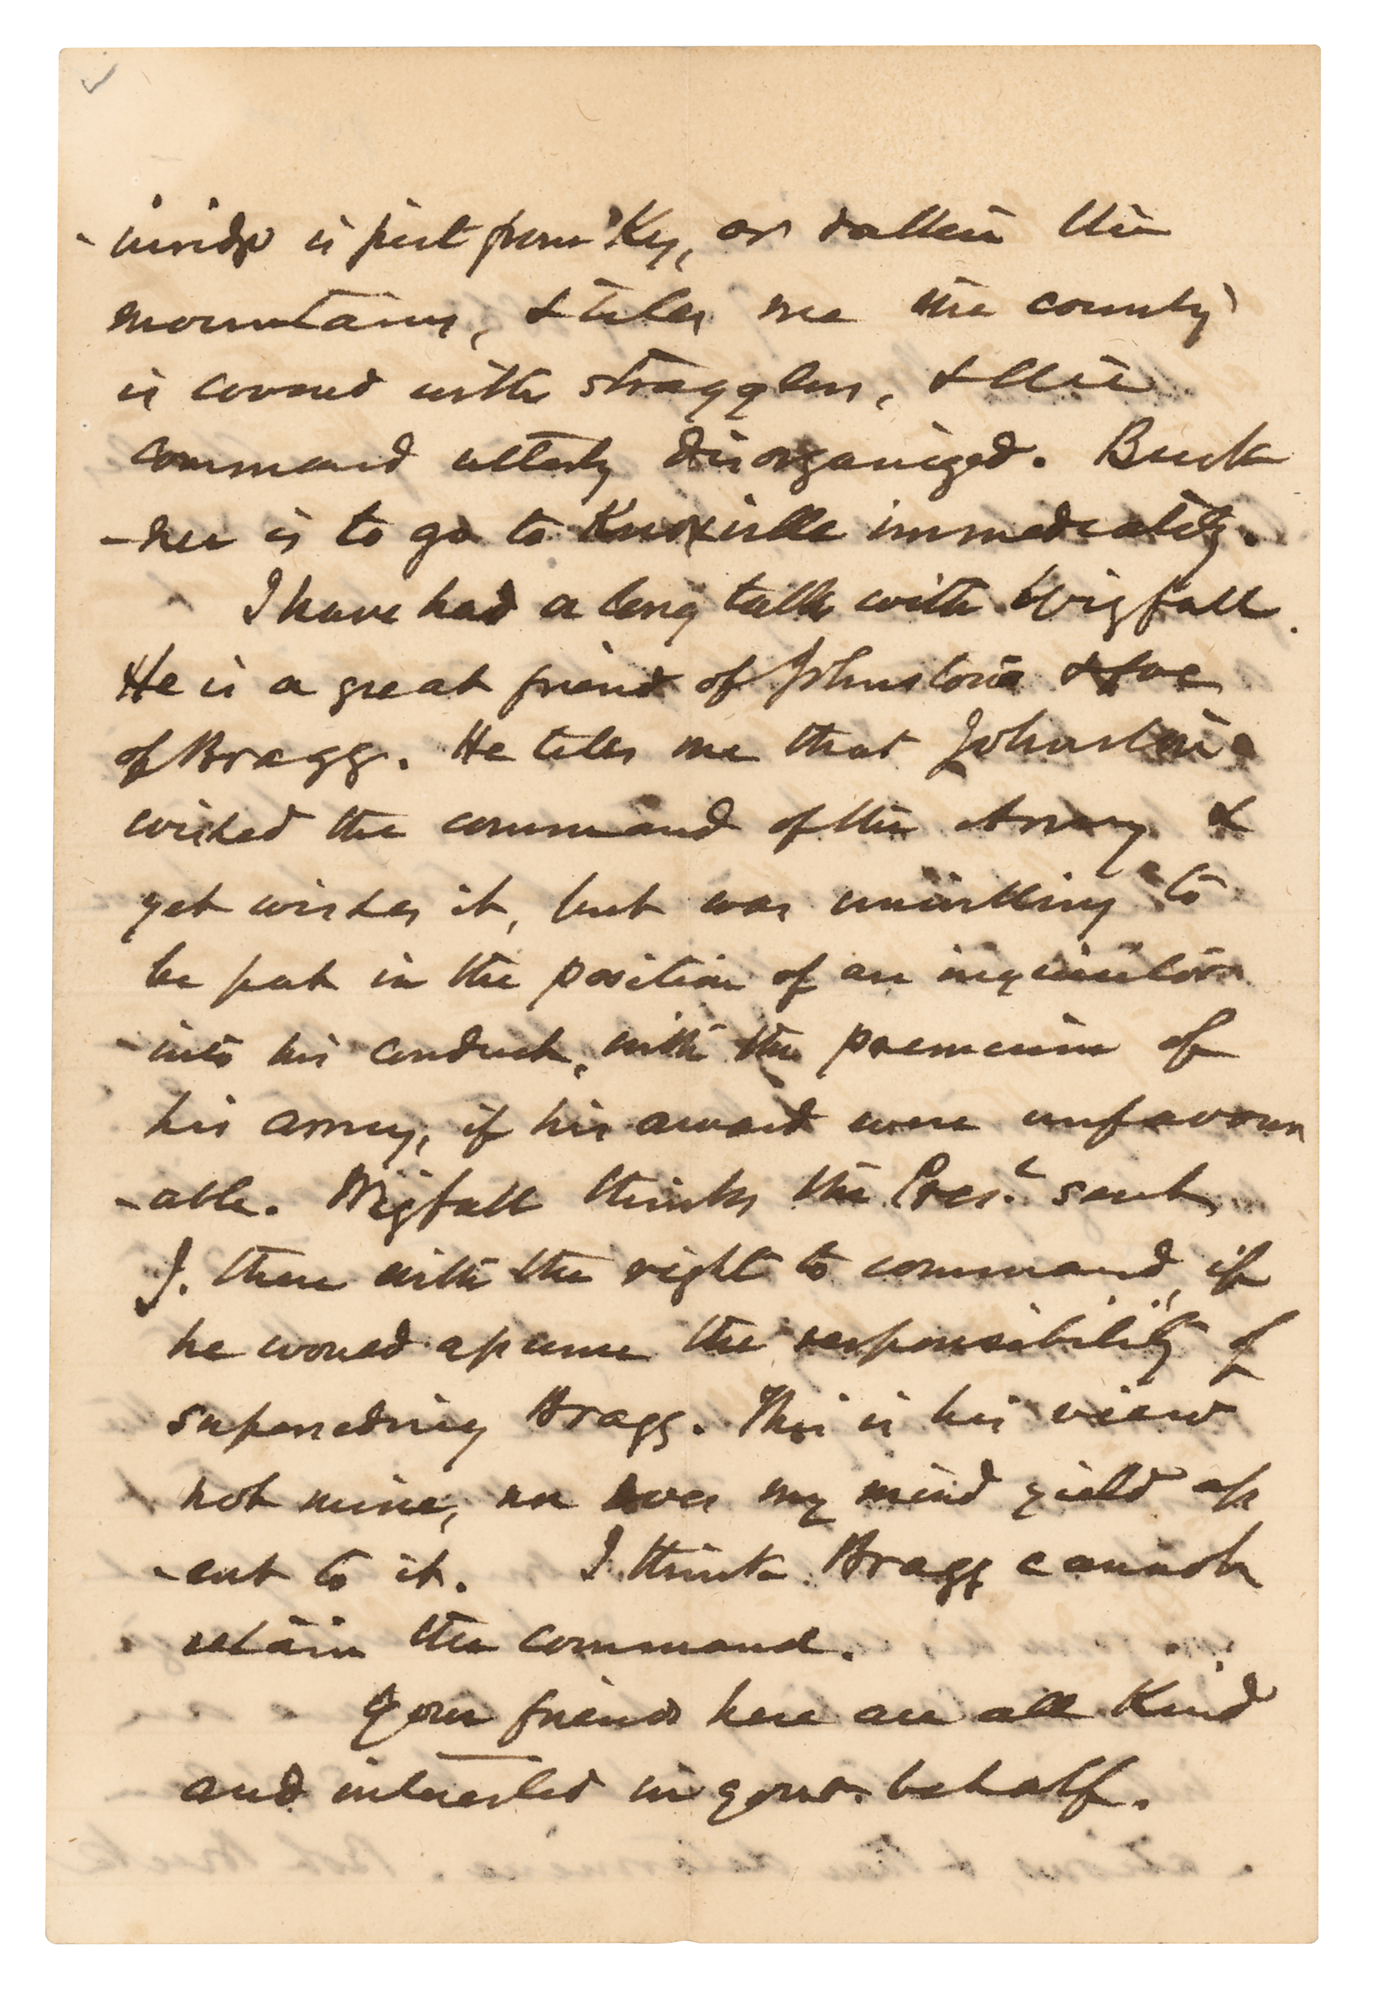 -inridge is just from Ky, or rather the
mountains, & tells me the country
is covered with stragglers, & the
command utterly disorganized. Buck
-ner is to go to Knoxville immediately.
I have had a long talk with Wigfall.
He is a great friend of Johnston's & foe
of Bragg. He tells me that Johnston
wished the command of the Army &
yet wishes it, but was unwilling to
be put in the position of an inquisitor
-into his conduct, with the premium of
his army, if his award were unfavour
-able. Wigfall thinks the Prest. sent
J. there with the right to command, if
he would assume the responsibility of
superseding Bragg. This is his view
not mine, nor does my mind yield ass
-ent to it. I think Bragg cannot
retain the command.
Your friends here are all kind
and interested in your behalf.